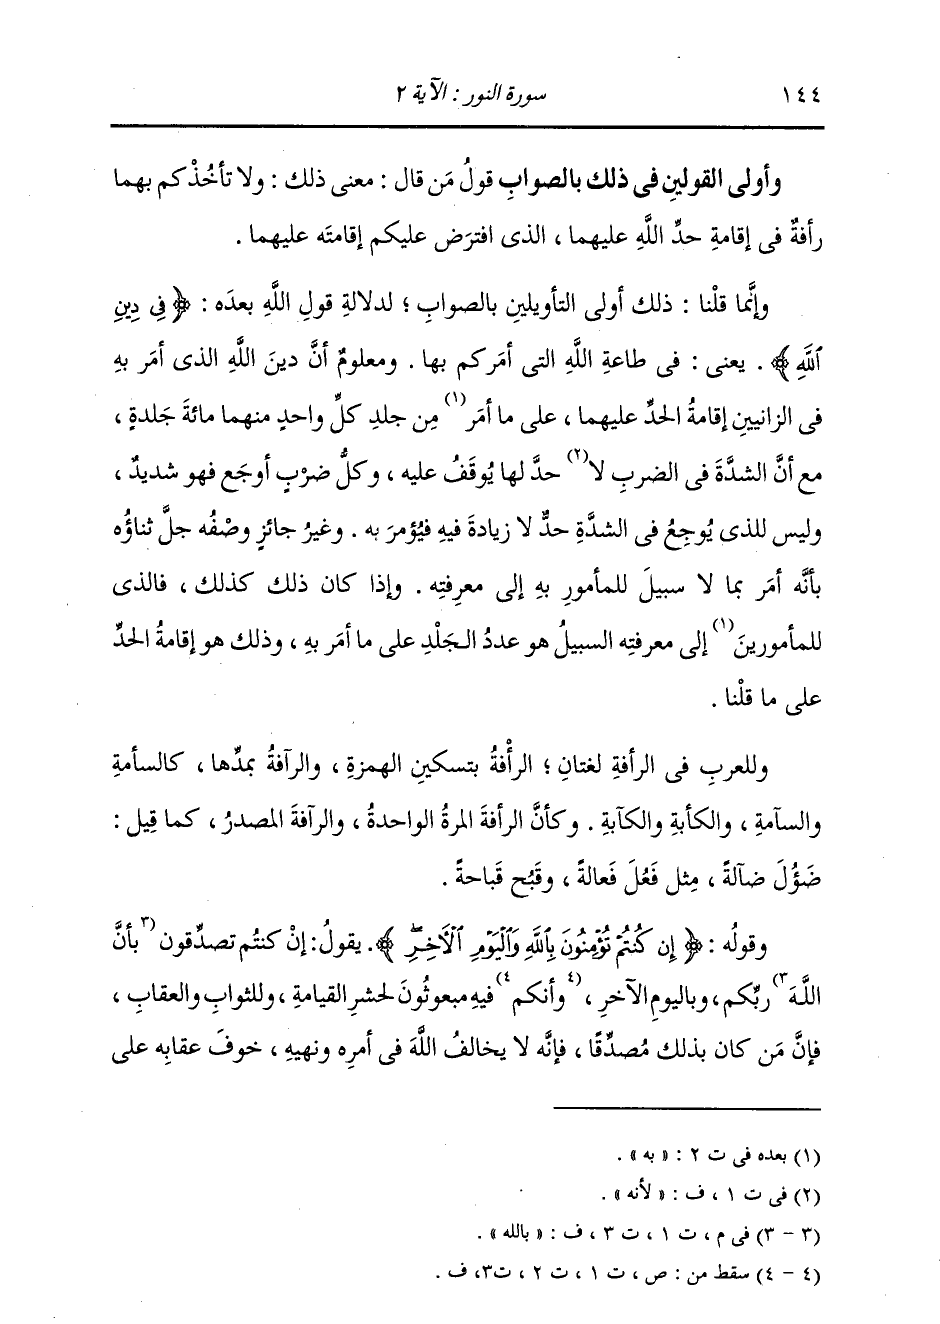 ١٤٤ سورة النور : الآية ٢
وأولى القولينِ فى ذلك بالصوابِ قولُ مَن قال : معنى ذلك : ولا تأخُذْكم بهما
رأفةٌ فى إقامةِ حدِّ اللَّهِ عليهما ، الذى افترَض عليكم إقامتَه عليهما .
وإنَّما قلْنا : ذلك أولى التأويلينِ بالصوابِ ؛ لدلالةِ قولِ اللَّهِ بعدَه : ﴿ فِى دِينِ
ٱللَّهِ ﴾ . يعنى : فى طاعةِ اللَّهِ التى أمَركم بها . ومعلومٌ أنَّ دينَ اللَّهِ الذى أمَر بهِ
فى الزانيينِ إقامةُ الحدِّ عليهما ، على ما أمَر(١) مِن جلدِ كلِّ واحدٍ منهما مائةَ جَلدةٍ ،
مع أنَّ الشدَّةَ فى الضربِ لا(٢) حدَّ لها يُوقَفُ عليه ، وكلُّ ضرْبٍ أوجَع فهو شديدٌ ،
وليس للذى يُوجِعُ فى الشدَّةِ حدٌّ لا زيادةَ فيهِ فيُؤمرَ به . وغيرُ جائزٍ وصْفُه جلَّ ثناؤُه
بأنَّه أمَر بما لا سبيلَ للمأمورِ بهِ إلى معرفتِه . وإذا كان ذلك كذلك ، فالذى
للمأمورينَ(١) إلى معرفتِه السبيلُ هو عددُ الجَلْدِ على ما أمَر بهِ ، وذلك هو إقامةُ الحدِّ
على ما قلْنا .
وللعربِ فى الرأفةِ لغتانِ ؛ الرأْفةُ بتسكينِ الهمزةِ ، والرآفةُ بمدِّها ، كالسأمةِ
والسآمةِ ، والكأبةِ والكآبةِ . وكأنَّ الرأفةَ المرةُ الواحدةُ ، والرآفةَ المصدرُ ، كما قِيل :
ضَؤُلَ ضآلةً ، مِثل فَعُلَ فَعالةً ، وقَبُح قَباحةً .
وقولُه : ﴿ إِن كُنتُمْ تُؤْمِنُونَ بِٱللَّهِ وَٱلْيَوْمِ ٱلْآخِرِ ﴾ . يقولُ : إنْ كنتُم تصدِّقون (٣بأنَّ
اللَّهَ٣) ربِّكم ، وباليومِ الآخرِ ، (٤وأنكم٤) فيهِ مبعوثُونَ لحشرِ القيامةِ ، وللثوابِ والعقابِ ،
فإنَّ مَن كان بذلك مُصدِّقًا ، فإنَّه لا يخالفُ اللَّهَ فى أمرِه ونهيهِ ، خوفَ عقابِه على
(١) بعده فى ت ٢ : « به » .
(٢) فى ت ١ ، ف : « لأنه » .
(٣ - ٣) فى م ، ت ١ ، ت ٣ ، ف : « بالله » .
(٤ - ٤) سقط من : ص ، ت ١ ، ت ٢ ، ت٣ ، ف .